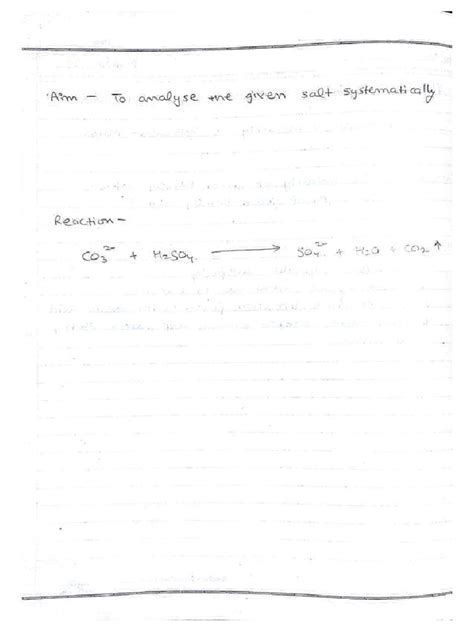 Aim - To analyse the given salt systematically
Reaction -
CO₃²⁻ + H₂SO₄ ⟶ SO₄²⁻ + H₂O + CO₂ ↑